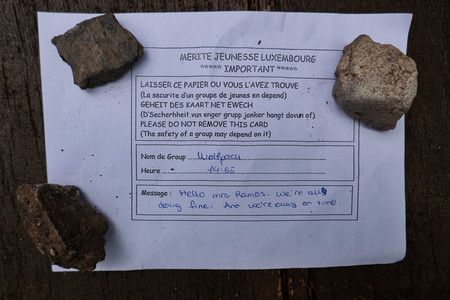 MERITE JEUNESSE LUXEMBOURG
***** IMPORTANT *****
LAISSER CE PAPIER OU VOUS L'AVEZ TROUVE
(La securite d'un groupe de jeunes en depend)
GEHEIT DES KAART NET EWECH
(D'Secherhheit vun enger grupp jonker hangt dovun of)
PLEASE DO NOT REMOVE THIS CARD
(The safety of a group may depend on it)
Nom de Group Wolfpack
Heure 14:55
Message: Hello mrs Ramos. We're all
doing fine. And we're on time.